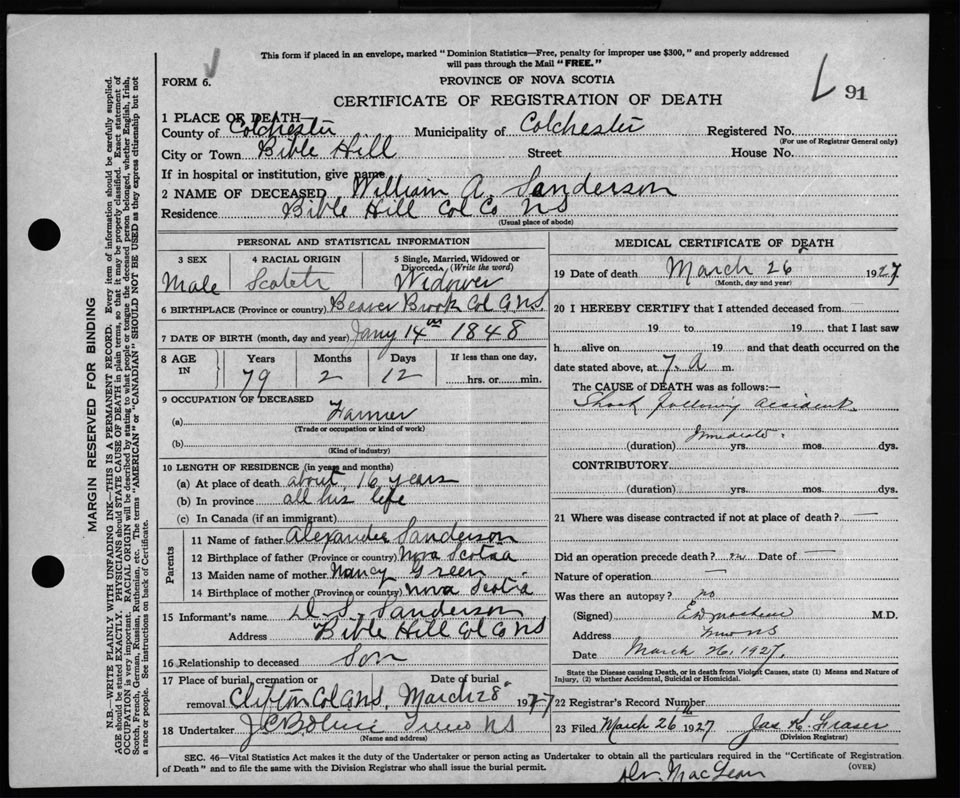 This form if placed in an envelope, marked "Dominion Statistics—Free, penalty for improper use $300," and properly addressed
will pass through the Mail "FREE."
FORM 6.
PROVINCE OF NOVA SCOTIA
CERTIFICATE OF REGISTRATION OF DEATH
91
1 PLACE OF DEATH—
County of Colchester Municipality of Colchester Registered No.
(For use of Registrar General only)
City or Town Bible Hill Street House No.
If in hospital or institution, give name
2 NAME OF DECEASED William A. Sanderson
Residence Bible Hill Col Co NS
(Usual place of abode)
PERSONAL AND STATISTICAL INFORMATION
3 SEX Male
4 RACIAL ORIGIN Scotch
5 Single, Married, Widowed or Divorced, (Write the word) Widower
6 BIRTHPLACE (Province or country) Beaver Brook Col Co NS.
7 DATE OF BIRTH (month, day and year) Jany 14th 1848
8 AGE IN Years 79 Months 2 Days 12 If less than one day, hrs. or min.
9 OCCUPATION OF DECEASED
(a) Farmer
(Trade or occupation or kind of work)
(b)
(Kind of industry)
10 LENGTH OF RESIDENCE (in years and months)
(a) At place of death about 16 years
(b) In province all his life
(c) In Canada (if an immigrant)
Parents
11 Name of father Alexander Sanderson
12 Birthplace of father (Province or country) Nova Scotia
13 Maiden name of mother Nancy Green
14 Birthplace of mother (Province or country) Nova Scotia
15 Informant's name D. S. Sanderson
Address Bible Hill Col Co NS
16 Relationship to deceased Son
17 Place of burial, cremation or removal Clifton Col Co NS. Date of burial March 28 1927
18 Undertaker Truro NS
(Name and address)
MEDICAL CERTIFICATE OF DEATH
19 Date of death March 26 1927
(Month, day and year)
20 I HEREBY CERTIFY that I attended deceased from
19 to 19 that I last saw
h alive on 19 and that death occurred on the
date stated above, at 7. A m.
The CAUSE of DEATH was as follows:—
Shock following accident
Immediate.
(duration) yrs. mos. dys.
CONTRIBUTORY
(duration) yrs. mos. dys.
21 Where was disease contracted if not at place of death? —
Did an operation precede death? no Date of —
Nature of operation —
Was there an autopsy? no
(Signed) M.D.
Address Truro NS
Date March 26, 1927.
State the Disease causing Death, or in death from Violent Causes, state (1) Means and Nature of
Injury, (2) whether Accidental, Suicidal or Homicidal.
22 Registrar's Record Number
23 Filed March 26th 1927 Jas K. Fraser
(Division Registrar)
SEC. 46—Vital Statistics Act makes it the duty of the Undertaker or person acting as Undertaker to obtain all the particulars required in the "Certificate of Registration
of Death" and to file the same with the Division Registrar who shall issue the burial permit.
(OVER)
Dr. MacLean
MARGIN RESERVED FOR BINDING
N.B.—WRITE PLAINLY WITH UNFADING INK—THIS IS A PERMANENT RECORD. Every item of information should be carefully supplied.
AGE should be stated EXACTLY. PHYSICIANS should STATE CAUSE OF DEATH in plain terms, so that it may be properly classified. Exact statement of
OCCUPATION is very important. RACIAL ORIGIN will be described by stating to what people or tongue the deceased person belonged, whether English, Irish,
Scotch, French, German, Russian, Ruthenian, etc. The terms "AMERICAN" or "CANADIAN" SHOULD NOT BE USED as they express citizenship but not
a race or people. See instructions on back of Certificate.